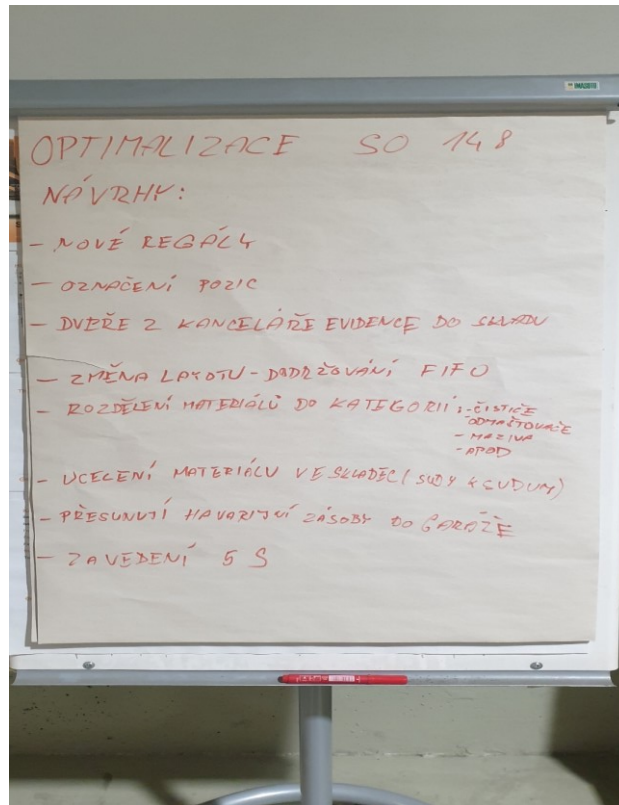 OPTIMALIZACE SO 148
NÁVRHY:
- NOVÉ REGÁLY
- OZNAČENÍ POZIC
- DVEŘE Z KANCELÁŘE EVIDENCE DO SKLADU
- ZMĚNA LAYOTU - DODRŽOVÁNÍ FIFO
- ROZDĚLENÍ MATERIÁLŮ DO KATEGORIÍ: - ČISTIČE
- ODMAŠŤOVAČE
- MAZIVA
- APOD
- UCELENÍ MATERIÁLU VE SKLADECH (SUDY K SUDUM)
- PŘESUNUTÍ HAVARIJNÍ ZÁSOBY DO GARÁŽE
- ZAVEDENÍ 5 S